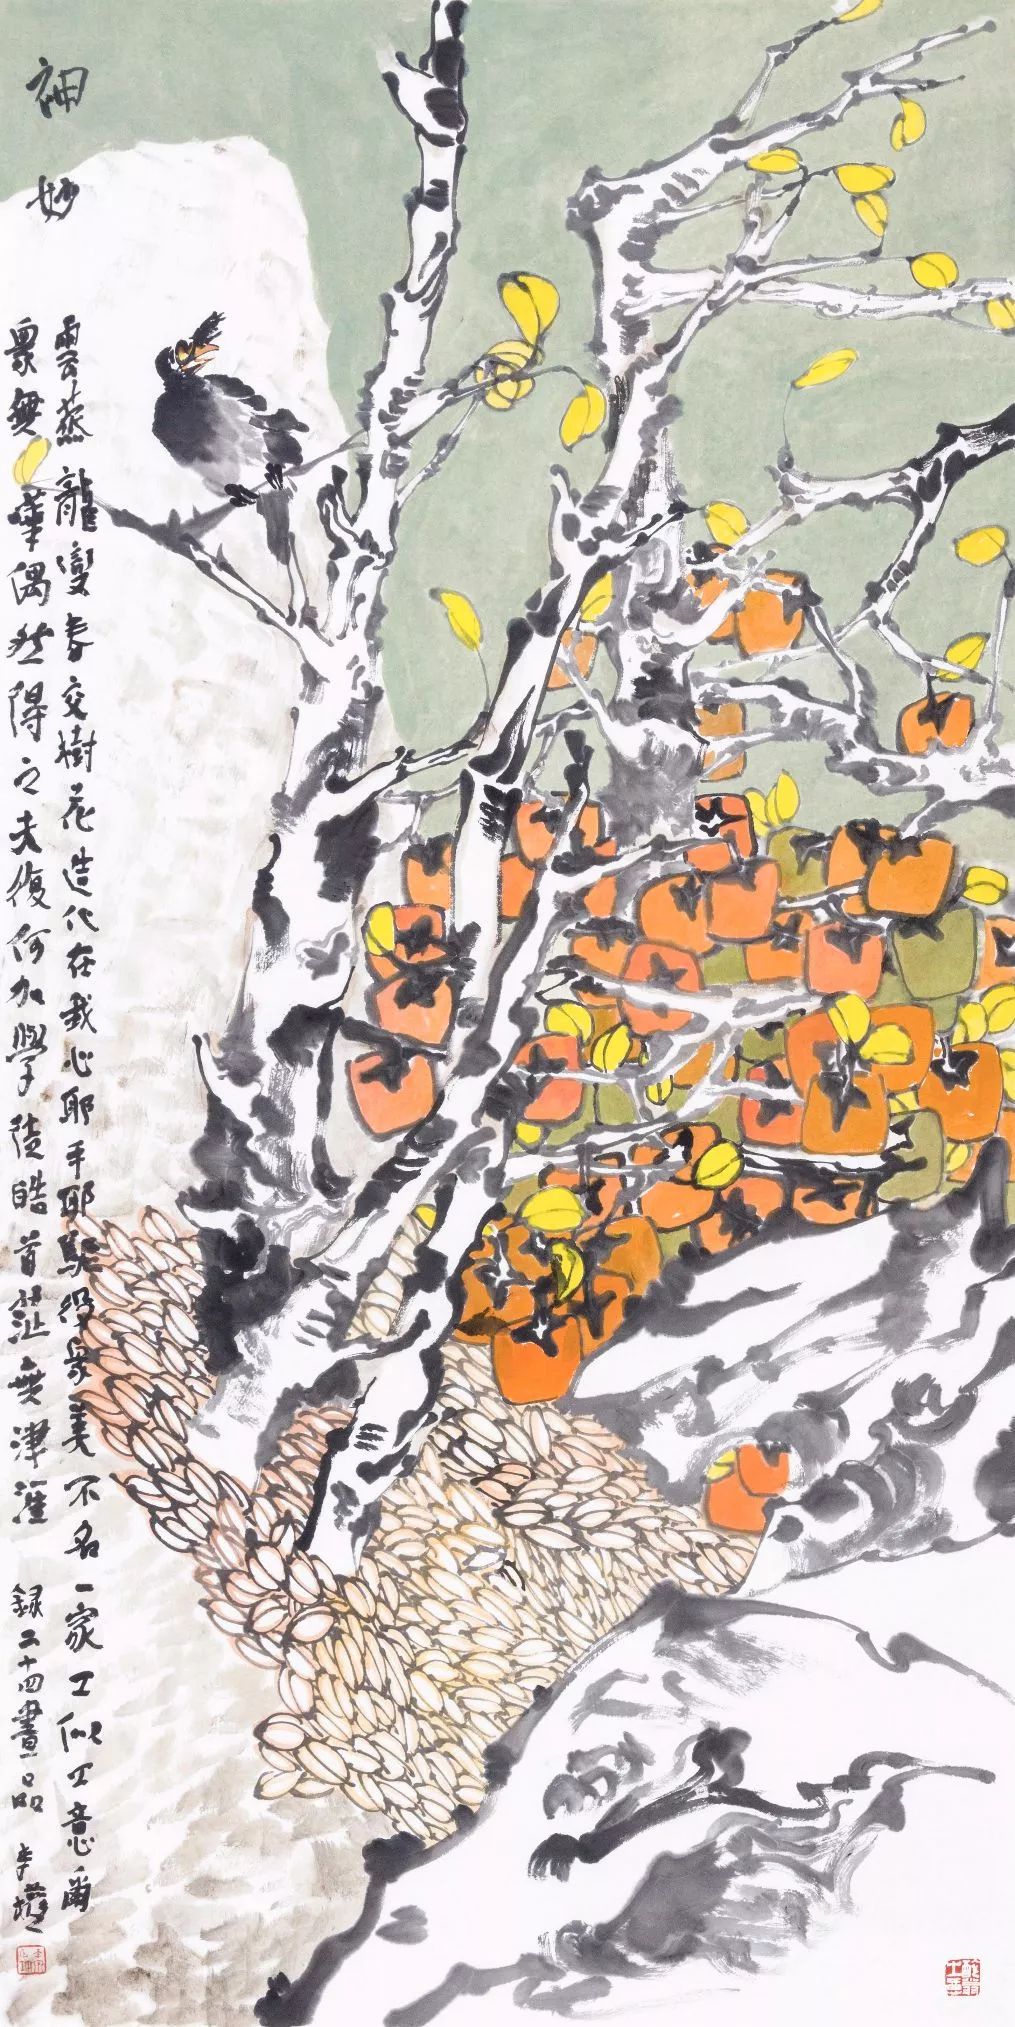 神妙
雲蒸龍變春交樹花造化在我心耶手耶驅役衆美不名一家工似工意爾
衆無譁偶然得之夫復何加學徒皓首茫無津涯
錄二十四畫品 李